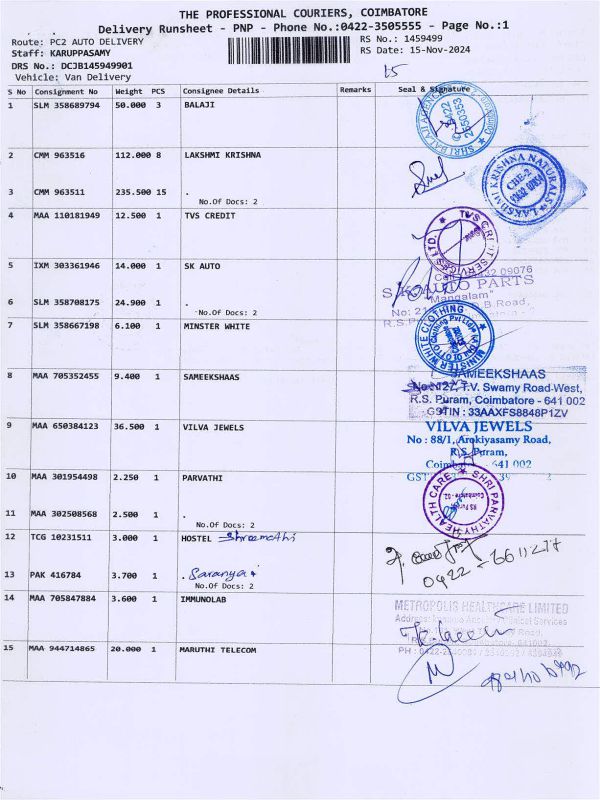 THE PROFESSIONAL COURIERS, COIMBATORE
Delivery Runsheet - PNP - Phone No.:0422-3505555 - Page No.:1
Route: PC2 AUTO DELIVERY
RS No.: 1459499
Staff: KARUPPASAMY
RS Date: 15-Nov-2024
DRS No.: DCJB145949901
Vehicle: Van Delivery
15
S No Consignment No Weight PCS Consignee Details Remarks Seal & Signature
1 SLM 358689794 50.000 3 BALAJI
SHRI BALAJI AGENC
0422
2550353
2 CMM 963516 112.000 8 LAKSHMI KRISHNA
LAKSHMI KRISHNA NATURALS
CBE-2.
3 CMM 963511 235.500 15 .
No.Of Docs: 2
4 MAA 110181949 12.500 1 TVS CREDIT
TVS CREDIT SERVICES LTD.
5 IXM 303361946 14.000 1 SK AUTO
09076
S.K AUTO PARTS
"Mangalam"
No: 21 D.B.Road,
R.S.P
6 SLM 358708175 24.900 1 .
No.Of Docs: 2
7 SLM 358667198 6.100 1 MINSTER WHITE
MINISTER WHITE CLOTHING
8 MAA 705352455 9.400 1 SAMEEKSHAAS
SAMEEKSHAAS
No: 127, T.V. Swamy Road-West,
R.S. Puram, Coimbatore - 641 002
GSTIN : 33AAXFS8848P1ZV
9 MAA 650384123 36.500 1 VILVA JEWELS
VILVA JEWELS
No : 88/1, Arokiyasamy Road,
R.S. Puram,
641 002
10 MAA 301954498 2.250 1 PARVATHI
SHRI PARVATHY HEALTH CARE
RS Puram
Coimbatore -02
11 MAA 302508568 2.500 1 .
No.Of Docs: 2
12 TCG 10231511 3.000 1 HOSTEL Shreemathi
13 PAK 416784 3.700 1 . Saranya
No.Of Docs: 2
14 MAA 705847884 3.600 1 IMMUNOLAB
METROPOLIS HEALTHCARE LIMITED
15 MAA 944714865 20.000 1 MARUTHI TELECOM